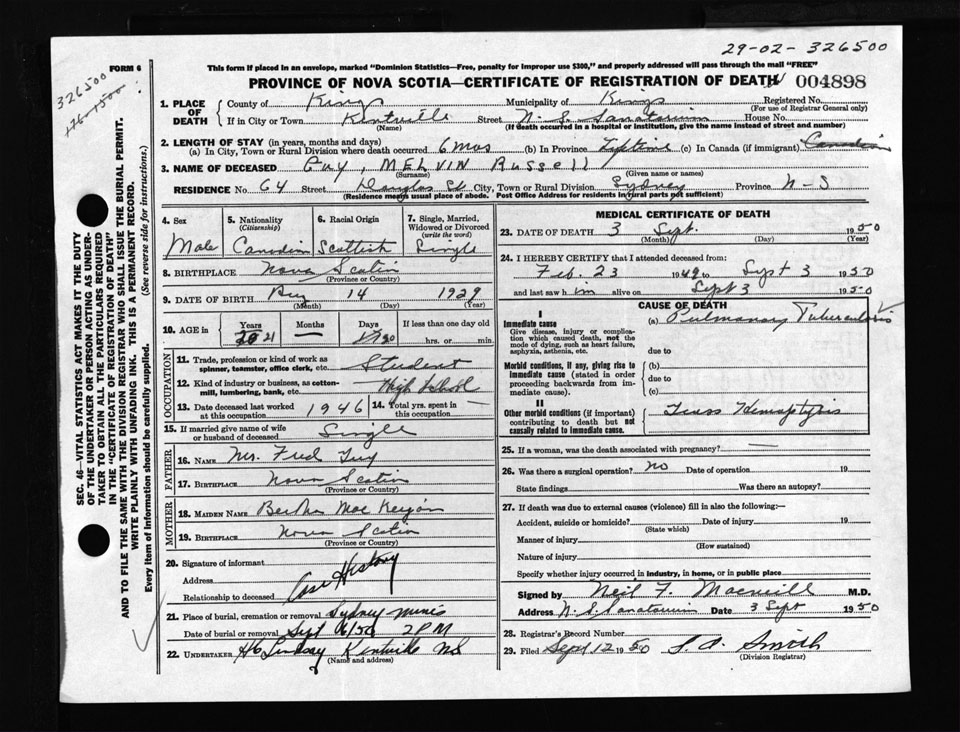 29-02-326500
FORM 6
326500
This form if placed in an envelope, marked "Dominion Statistics—Free, penalty for improper use $300," and properly addressed will pass through the mail "FREE"
PROVINCE OF NOVA SCOTIA—CERTIFICATE OF REGISTRATION OF DEATH 004898
1. PLACE OF DEATH { County of Kings Municipality of Kings Registered No.
(For use of Registrar General only)
If in City or Town Kentville Street N. S. Sanatorium House No.
(Name) (If death occurred in a hospital or institution, give the name instead of street and number)
2. LENGTH OF STAY (in years, months and days)
(a) In City, Town or Rural Division where death occurred 6 Mos (b) In Province Lifetime (c) In Canada (if immigrant) Canadian
3. NAME OF DECEASED Guy, MELVIN Russell
(Surname) (Given name or names)
RESIDENCE No. 64 Street Douglas St. City, Town or Rural Division Sydney Province N-S
(Residence means usual place of abode. Post Office Address for residents in rural parts not sufficient)
4. Sex
5. Nationality
(Citizenship)
6. Racial Origin
7. Single, Married, Widowed or Divorced
(write the word)
Male Canadian Scottish Single
8. BIRTHPLACE Nova Scotia
(Province or Country)
9. DATE OF BIRTH Aug 14 1929
(Month) (Day) (Year)
10. AGE in { Years Months Days If less than one day old
21 — 20 hrs. or min.
OCCUPATION
11. Trade, profession or kind of work as spinner, teamster, office clerk, etc. Student
12. Kind of industry or business, as cotton-mill, lumbering, bank, etc. High School
13. Date deceased last worked at this occupation 1946 14. Total yrs. spent in this occupation —
15. If married give name of wife or husband of deceased Single
FATHER
16. NAME Mr. Fred Guy
17. BIRTHPLACE Nova Scotia
(Province or Country)
MOTHER
18. MAIDEN NAME Bertha Mac Keigan
19. BIRTHPLACE Nova Scotia
(Province or Country)
20. Signature of informant
Address
Relationship to deceased
Case History
21. Place of burial, cremation or removal Sydney Mines
Date of burial or removal Sept 6/50 2 PM
22. UNDERTAKER H C Lindsay Kentville NS
(Name and address)
MEDICAL CERTIFICATE OF DEATH
23. DATE OF DEATH 3 Sept. 1950
(Month) (Day) (Year)
24. I HEREBY CERTIFY that I attended deceased from:
Feb. 23 1949 to Sept 3 1950
and last saw him alive on Sept 3 1950
CAUSE OF DEATH
I
Immediate cause (a) Pulmonary Tuberculosis
Give disease, injury or complication which caused death, not the mode of dying, such as heart failure, asphyxia, asthenia, etc.
due to
Morbid conditions, if any, giving rise to immediate cause (stated in order proceeding backwards from immediate cause).
(b)
due to
(c)
II
Other morbid conditions (if important) contributing to death but not causally related to immediate cause.
Hemoptysis
25. If a woman, was the death associated with pregnancy? —
26. Was there a surgical operation? no Date of operation 19
State findings Was there an autopsy?
27. If death was due to external causes (violence) fill in also the following:—
Accident, suicide or homicide? Date of injury 19
(State which)
Manner of injury
(How sustained)
Nature of injury
Specify whether injury occurred in industry, in home, or in public place
Signed by Neil F. Macneill M.D.
Address N. S. Sanatorium Date 3 Sept 1950
28. Registrar's Record Number
29. Filed Sept 12 1950 S. A. Smith
(Division Registrar)
SEC. 46—VITAL STATISTICS ACT MAKES IT THE DUTY
OF THE UNDERTAKER OR PERSON ACTING AS UNDER-
TAKER TO OBTAIN ALL THE PARTICULARS REQUIRED
IN THE "CERTIFICATE OF REGISTRATION OF DEATH"
AND TO FILE THE SAME WITH THE DIVISION REGISTRAR WHO SHALL ISSUE THE BURIAL PERMIT.
WRITE PLAINLY WITH UNFADING INK. THIS IS A PERMANENT RECORD.
Every item of information should be carefully supplied. (See reverse side for instructions.)